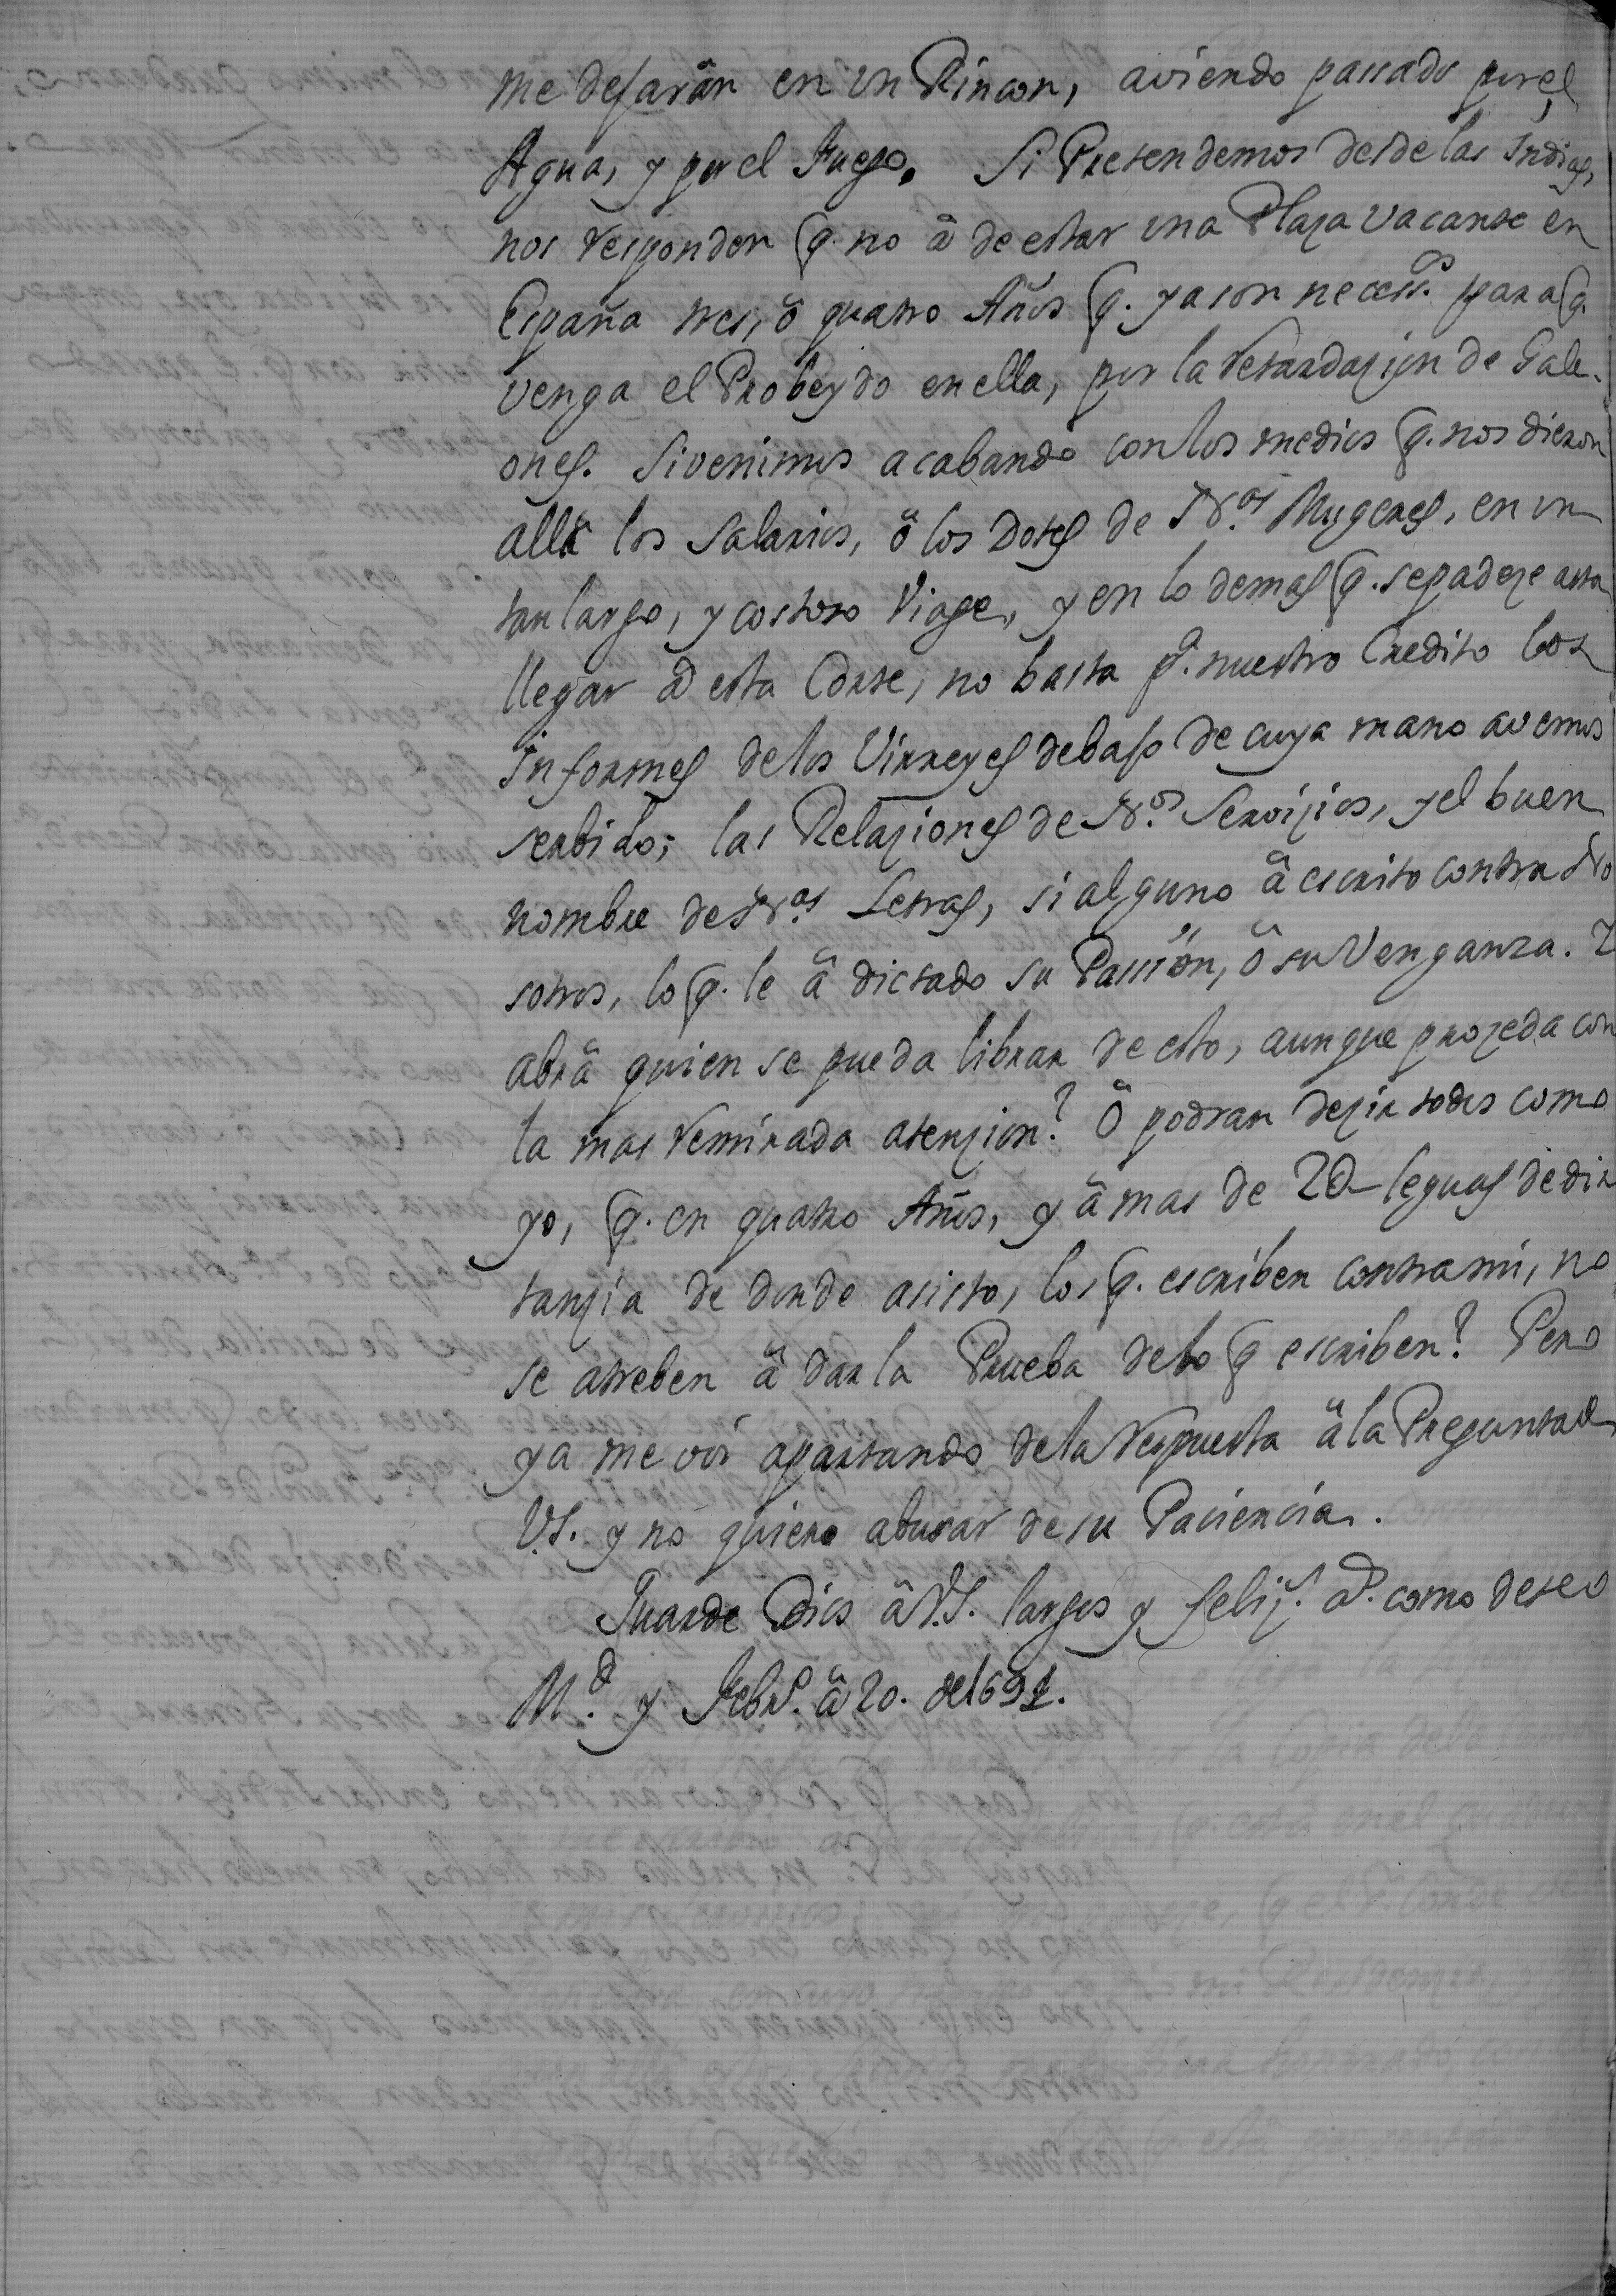 me dejarân en vn Rincon, aviendo passado por el
Agua, y por el Fuego. Si Pretendemos desde las Indias,
nos responden q. no â de estar vna Plaza vacante en
España tres, ô quatro Años q. ya son necess.os para q.
venga el Probeydo en ella, por la retardazion de Gale-
ones. Si venimos acabando con los medios q. nos dieron
alla los Salarios, ô los Dotes de Nr.as Mugeres, en vn
tan largo, y costoso Viage, y en lo demas q. se padeze asta
llegar â esta Corte, no basta p.a nuestro Credito los
informes de los Virreyes debajo de cuya mano avemos
serbido; las Relaziones de Nr.os Servizios, y el buen
nombre de Nr.as Letras, si alguno â escrito contra No
sotros, lo q. le â dictado su Passiön, ô su Venganza. I
abrâ quien se pueda librar de esto, aunque prozeda con
la mas remirada atenzion? Ô podran dezir todos como
yo, q. en quatro Años, y â mas de 2 leguas de dis
tanzia de donde asisto, los q. escriben contra mi, no
se atreben â dar la Prueba de lo q escriben? Pero
ya me voi apartando de la respuesta â la Pregunta de
V.S. y no quiero abusar de su Paciencia.
Guarde Dios â V.S. largos y feliz.s a.s como deseo
M.d y Febr.o â 20. de 1691.